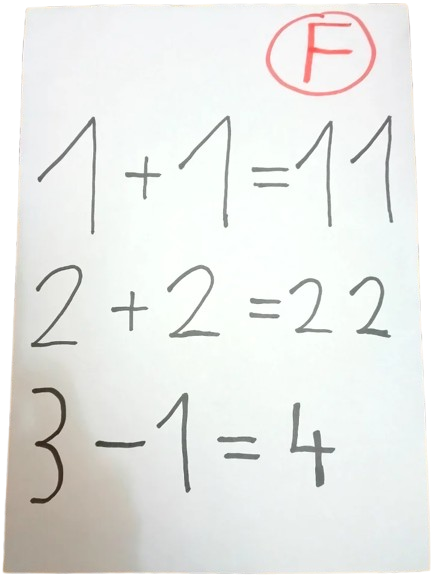 F
1+1=11
2+2=22
3-1=4